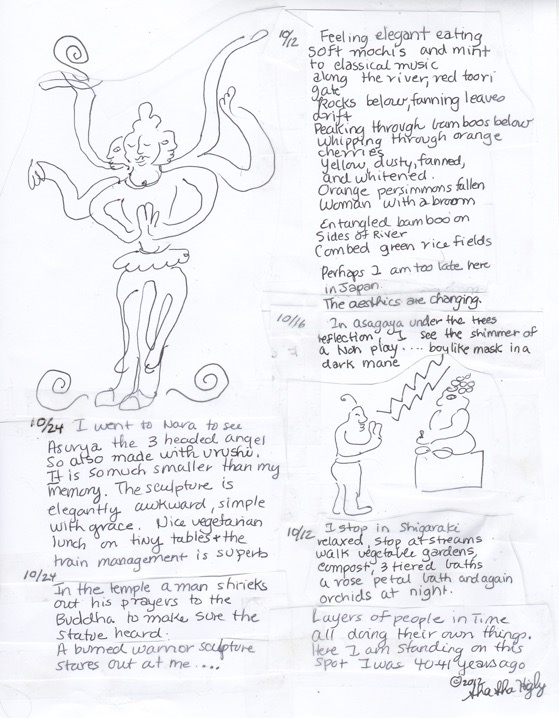 10/24 I went to Nara to see
Asurya the 3 headed angel
So also made with urushi.
It is so much smaller than my
memory. The sculpture is
elegantly awkward, simple
with grace. Nice vegetarian
lunch on tiny tables + the
train management is superb
10/24
In the temple a man shrieks
out his prayers to the
Buddha to make sure the
statue heard.
A burned warrior sculpture
stares out at me....
10/12 Feeling elegant eating
soft mochi's and mint
to classical music
along the river, red toori
gate
Rocks below, fanning leaves
drift
Peaking through bamboos below
whipping through orange
cherries
Yellow, dusty, fanned,
and whitened.
Orange persimmons fallen
Woman with a broom
Entangled bamboo on
Sides of River
Combed green rice fields
Perhaps I am too late here
in Japan.
The aesthics are changing.
10/16 In asagaya under the trees
reflection I see the shimmer of
a Noh play.... boylike mask in a
dark mane
10/12 I stop in Shigaraki
relaxed, stop at streams
walk vegetable gardens,
compost, 3 tiered baths
a rose petal bath and again
orchids at night.
Layers of people in Time
all doing their own things.
Here I am standing on this
spot I was 40 41 years ago
Sha Sha Higby